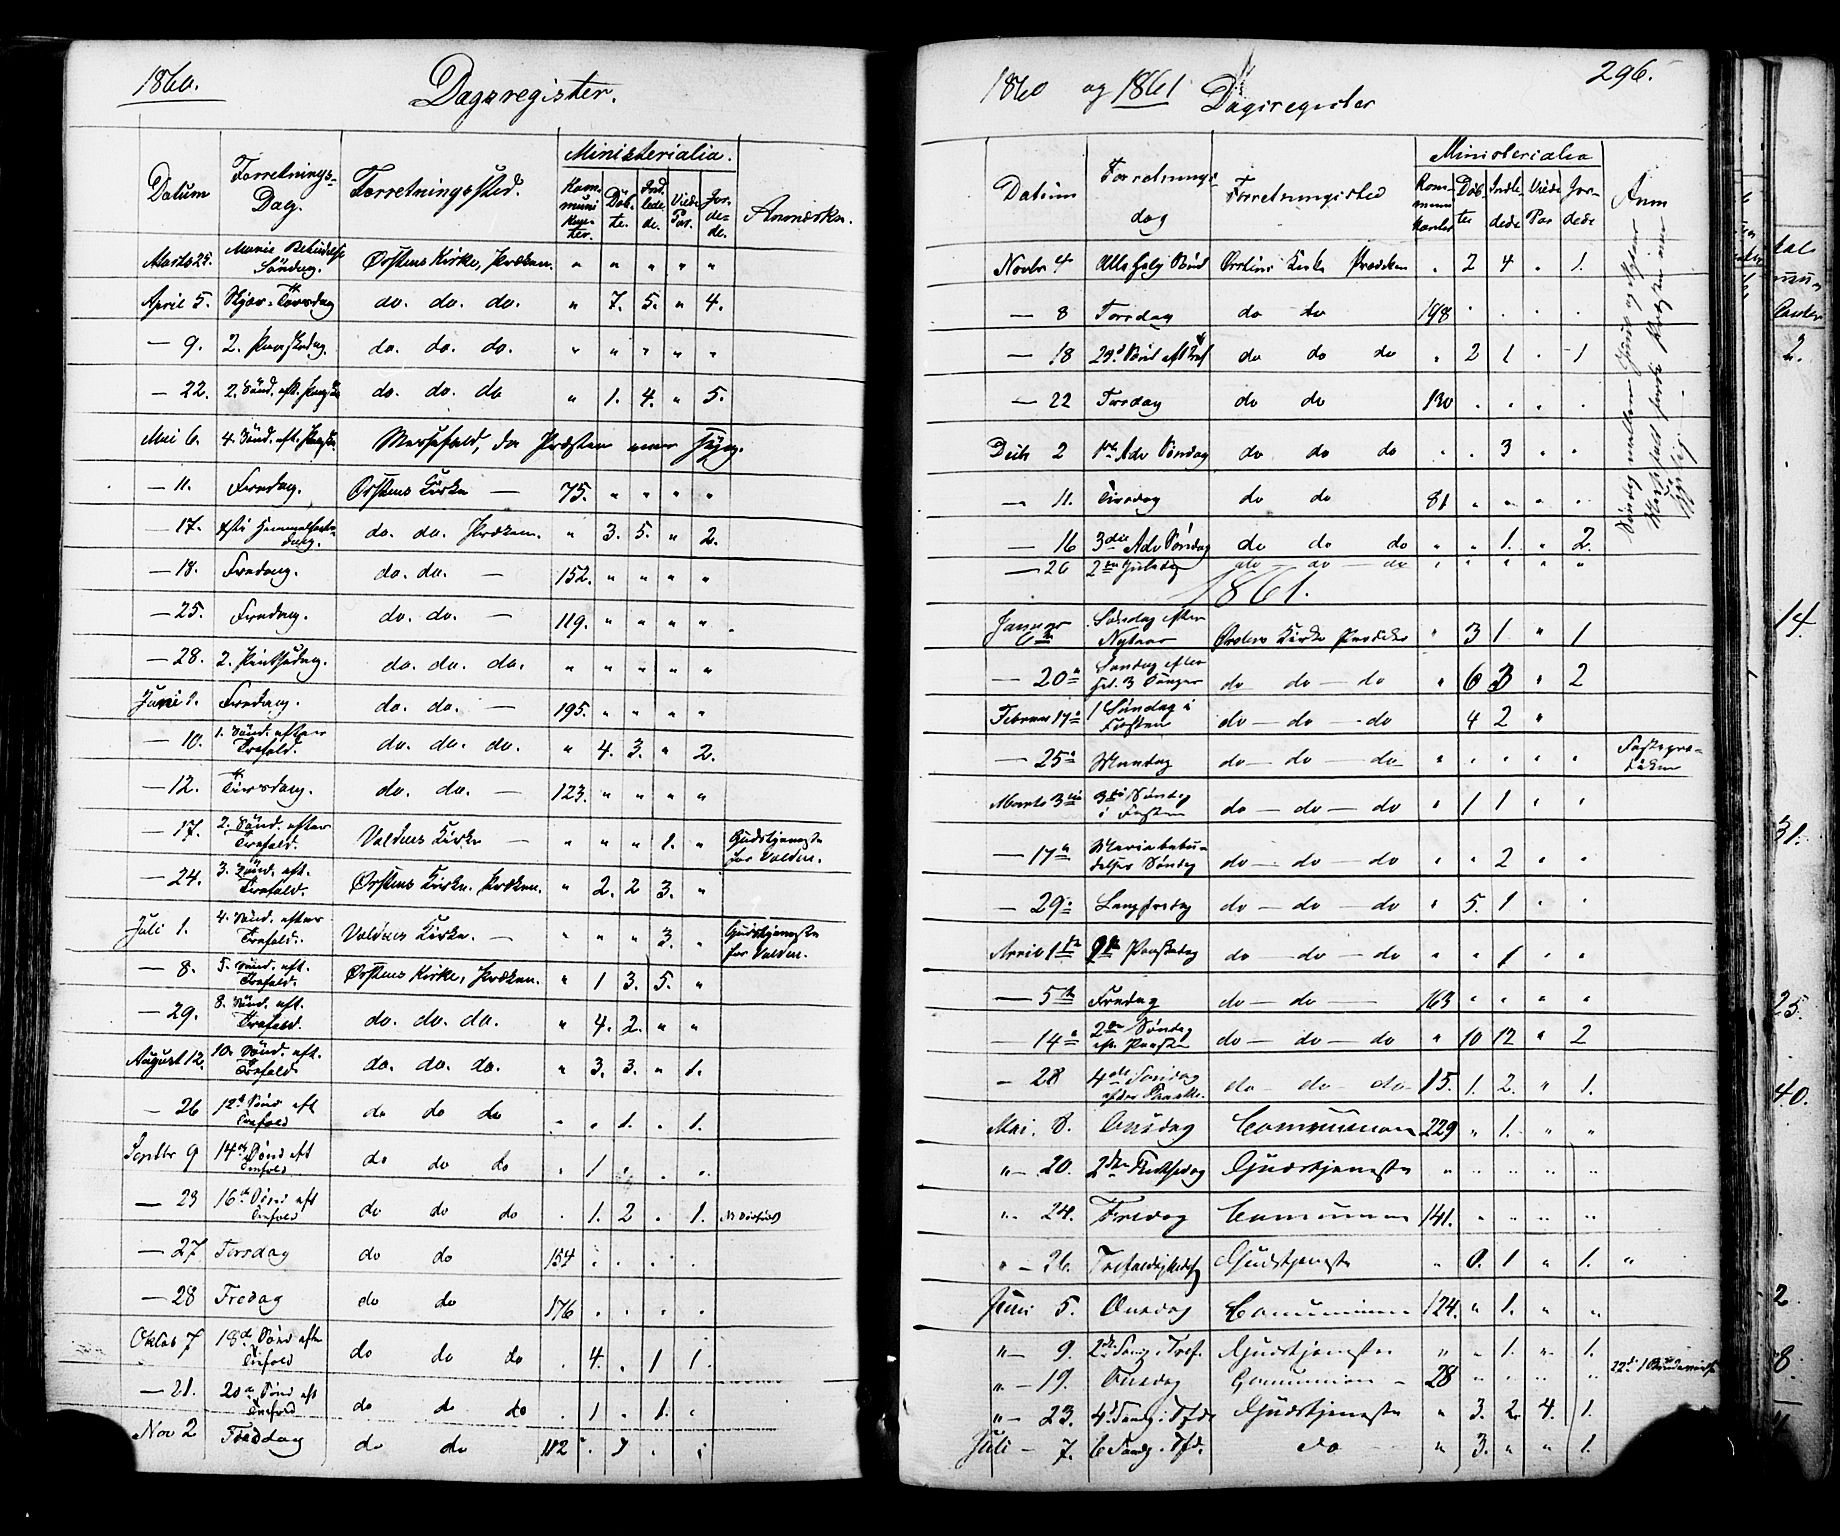 1860.
Dagsregister.
Datum Forretnings-Dag. Forretningssted. Ministerialia. Anmærkn.
Kommunikanter. Døbte. Indledede. Viede Par. Jordede.
Marts 25. Mariæ Bebudelse Søndag. Ørstens Kirke, Præken. " " " " "
April 5. Skjær-Torsdag do. do. do. " 7. 5. " 4.
— 9. 2. Paaskedag. do. do. do. " " " " "
— 22. 2. Sønd. eft. Paaske do. do. do " 1. 4. " 5.
Mai 6. 4. Sønd. eft. Paaske. Messefald, da Præsten var syg.
— 11. Fredag. Ørstens Kirke — 75. " " " "
— 17. do. do. Præken. " 3. 5. " 2.
— 18. Fredag. do. do. — 152. " " " "
— 25. Fredag. do. do. — 119. " " " "
— 28. 2. Pintsedag. do. do. do. " " " " "
Juni 1. Fredag. do. do. — 195. " " " "
— 10. 1. Sønd. efter Trefold. do. do. do. " 4. 3. " 2.
— 12. Tirsdag. do. do. — 123. " " " "
— 17. 2. Sønd. efter Trefold. Voldens Kirke — " " " 1. " Gudstjeneste for Volden.
— 24. 3. Sønd. eft. Trefold. Ørstens Kirke. Præken. " 2. 2 3. "
Juli 1. 4. Sønd. efter Trefold. Voldens Kirke. — " " " 3. " Gudstjeneste for Volden.
— 8. 5. Sønd. eft. Trefold. Ørstens Kirke, Præken. " 1 3. 5. "
— 29. 8. Sønd. eft. Trefold. do. do. do. " 4. 2. " "
August 12. 10. Sønd. eft. Trefold. do. do. do. " 3. 3. " 1.
— 26 12te Sønd eft Trefold do do do " " 1. . 1.
Septbr 9 14de Sønd eft Trefold do do do . 1 . .
— 23 16de Sønd eft Trefold do do do . 1. 2 . 1.
— 27 Torsdag do do 154 . . . .
— 28 Fredag do do 176 . . . .
Oktob 7 18de Sønd efter Trefold do do do . 4. . 1 1.
— 21. 20de Sønd eft Trefold do do do . 1 . 1. .
Nov 2 do do
1860 og 1861 Dagsregister 296.
Datum Forretningsdag Forretningssted Ministerialia Anm
Kommunikanter Døbte Indledede Viede Par Jordede
Novbr 4 Alle Helg Sønd Ørstens Kirke Prædiken . 2 4 . 1.
— 8 Torsdag do do 198 . . . .
— 18 do do do " 2 1 . 1
— 22 Torsdag do do 130 . . . .
Decb 2 1ste Adv Søndag do do do . . 3 . .
— 11. Tirsdag do do 81 . . . .
— 16 3die Adv Søndag do do do " " 1. " 2.
— 26 2den Juledag do — do — do " " " " "
Søndag mellem
Messefald
1861.
Januar 6te Søndag efter Nytaar Ørstens Kirke Prædiken " 3 1 " 1
— 20de Søndag efter do — do — do " 6 3 " 2
Februar 17de 1 Søndag i Fasten do — do — do 4 2 "
— 25de Mandag do — do — do " " " " "
Marts 3die 3die Søndag i Fasten do — do — do " 1 1 " "
— 17de Mariæ bebudelses Søndag do — do — do " " 2 " "
— 29de Langfredag do — do — do " 5. 1 " "
April 1ste Paaskedag do — do — do " " 1 " "
— 5te Fredag do — do — 163 " " " "
— 14de 2den Søndag eft. Paasken do — do — do " 10 12 " 2
— 28 4de Søndag efter Paaske. do — do — do 15. 1. 2. " 1.
Mai. 8. Onsdag Communion 229 " 1. " "
" — 20. 2den Pintsedag Gudstjeneste " " " " "
" — 24. Fredag Communion 141. " " " "
" — 26. Trefoldigheds Gudstjeneste " 0. 1 " 1. "
Juni 5. Onsdag Communion 124. " 1. " "
" — 9. 2den Søndg. i Tref. Gudstjeneste " " 1. " 1.
" — 19. Onsdag Communion — 28 " " " "
" — 23. Gudstjeneste " 3. 2. 4. 1.
Juli — 7. do " 3. " " 1.
2.
14.
31.
25.
40.
2
8.